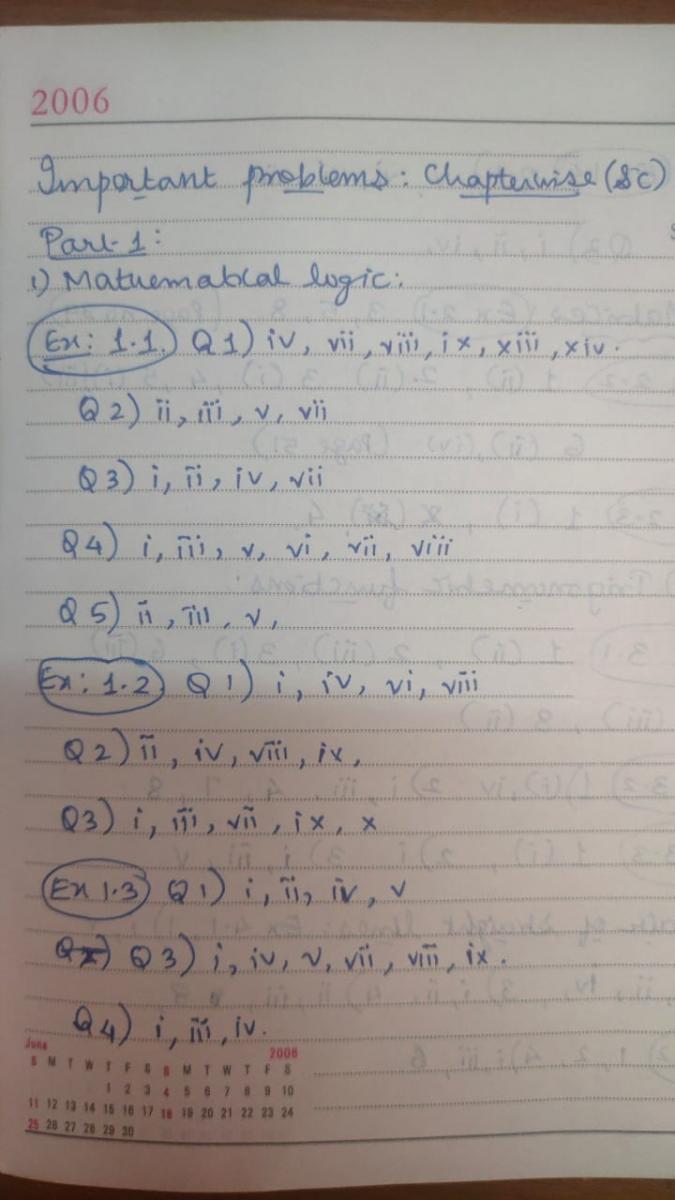 2006
Important problems: Chapterwise (Sc)
Part-1:
1) Mathematical logic:
Ex: 1.1. Q1) iv, vii, viii, ix, xiii, xiv.
Q2) ii, iii, v, vii
Q3) i, ii, iv, vii
Q4) i, iii, v, vi, vii, viii
Q5) ii, iii, v,
Ex: 1.2 Q1) i, iv, vi, viii
Q2) ii, iv, viii, ix,
Q3) i, iii, vii, ix, x
Ex 1.3 Q1) i, ii, iv, v
Q3) i, iv, v, vii, viii, ix.
Q4) i, iii, iv.
June 2006
S M T W T F S S M T W T F S
1 2 3 4 5 6 7 8 9 10
11 12 13 14 15 16 17 18 19 20 21 22 23 24
25 26 27 28 29 30